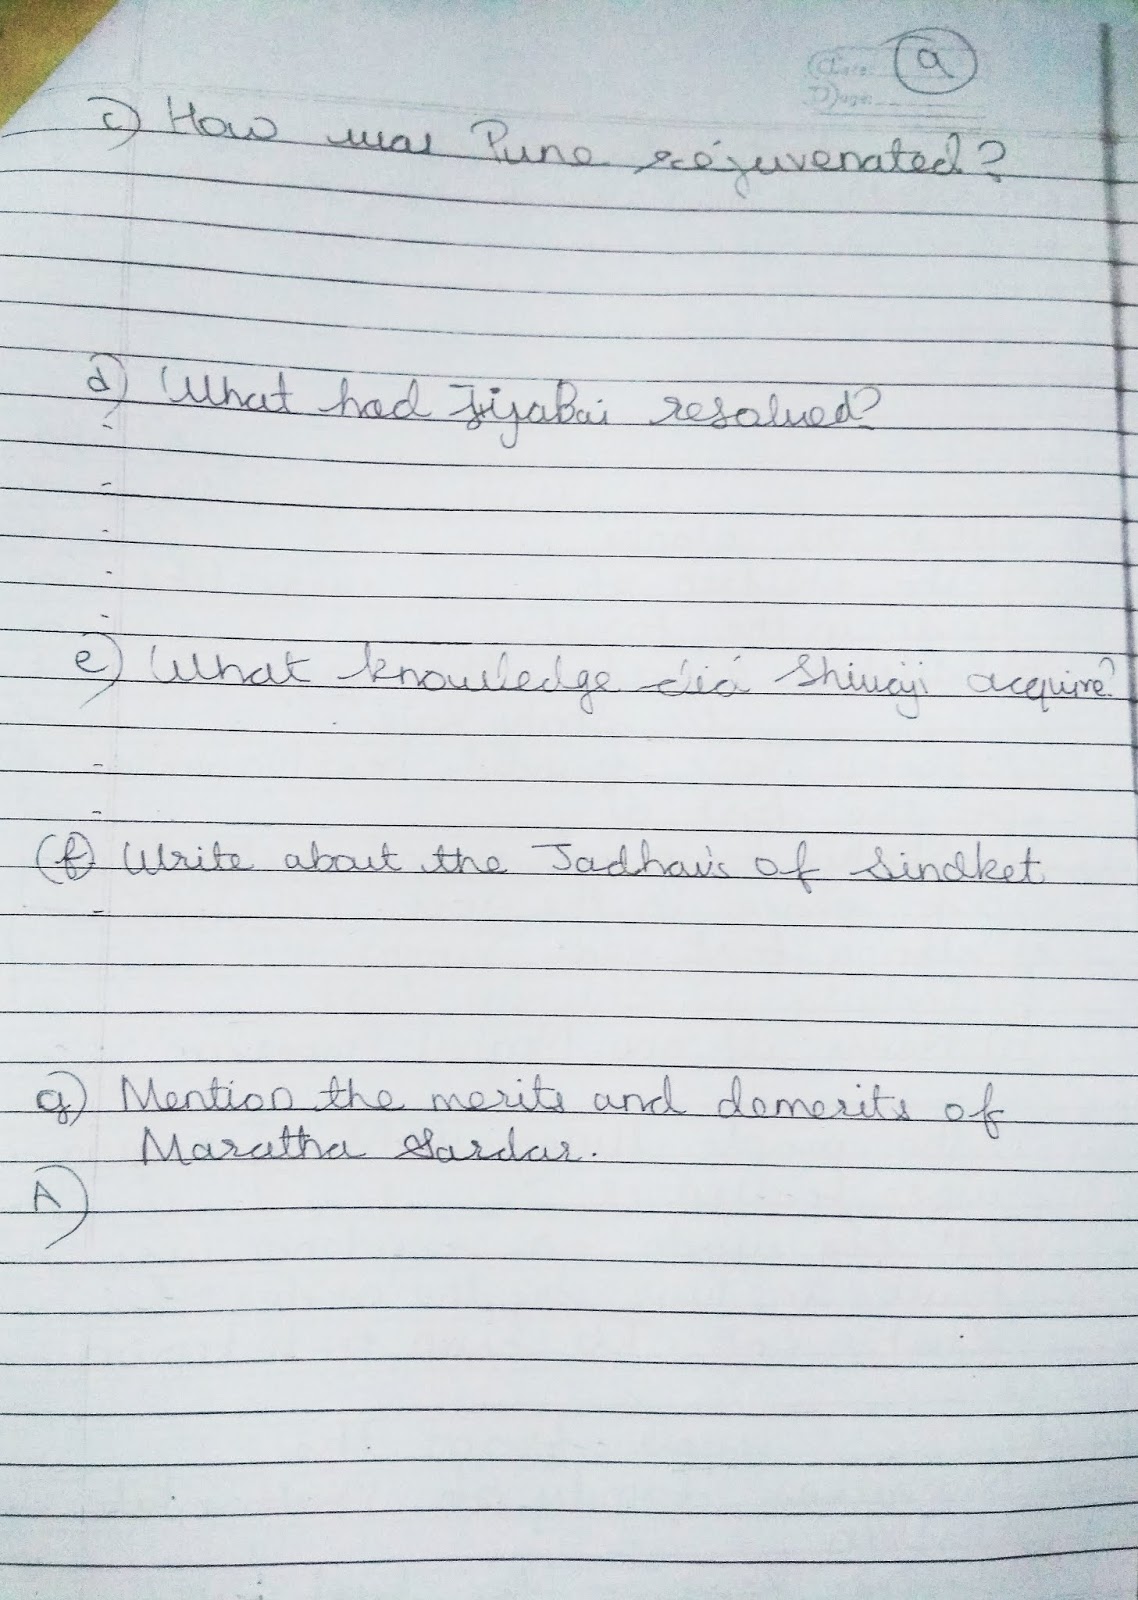 9
Date:
Page:
c) How was Pune rejuvenated?
d) What had JijaBai resolved?
e) What knowledge did Shivaji acquire?
(f) Write about the Jadhav's of Sindket
g) Mention the merits and demerits of
Maratha Sardar.
A)